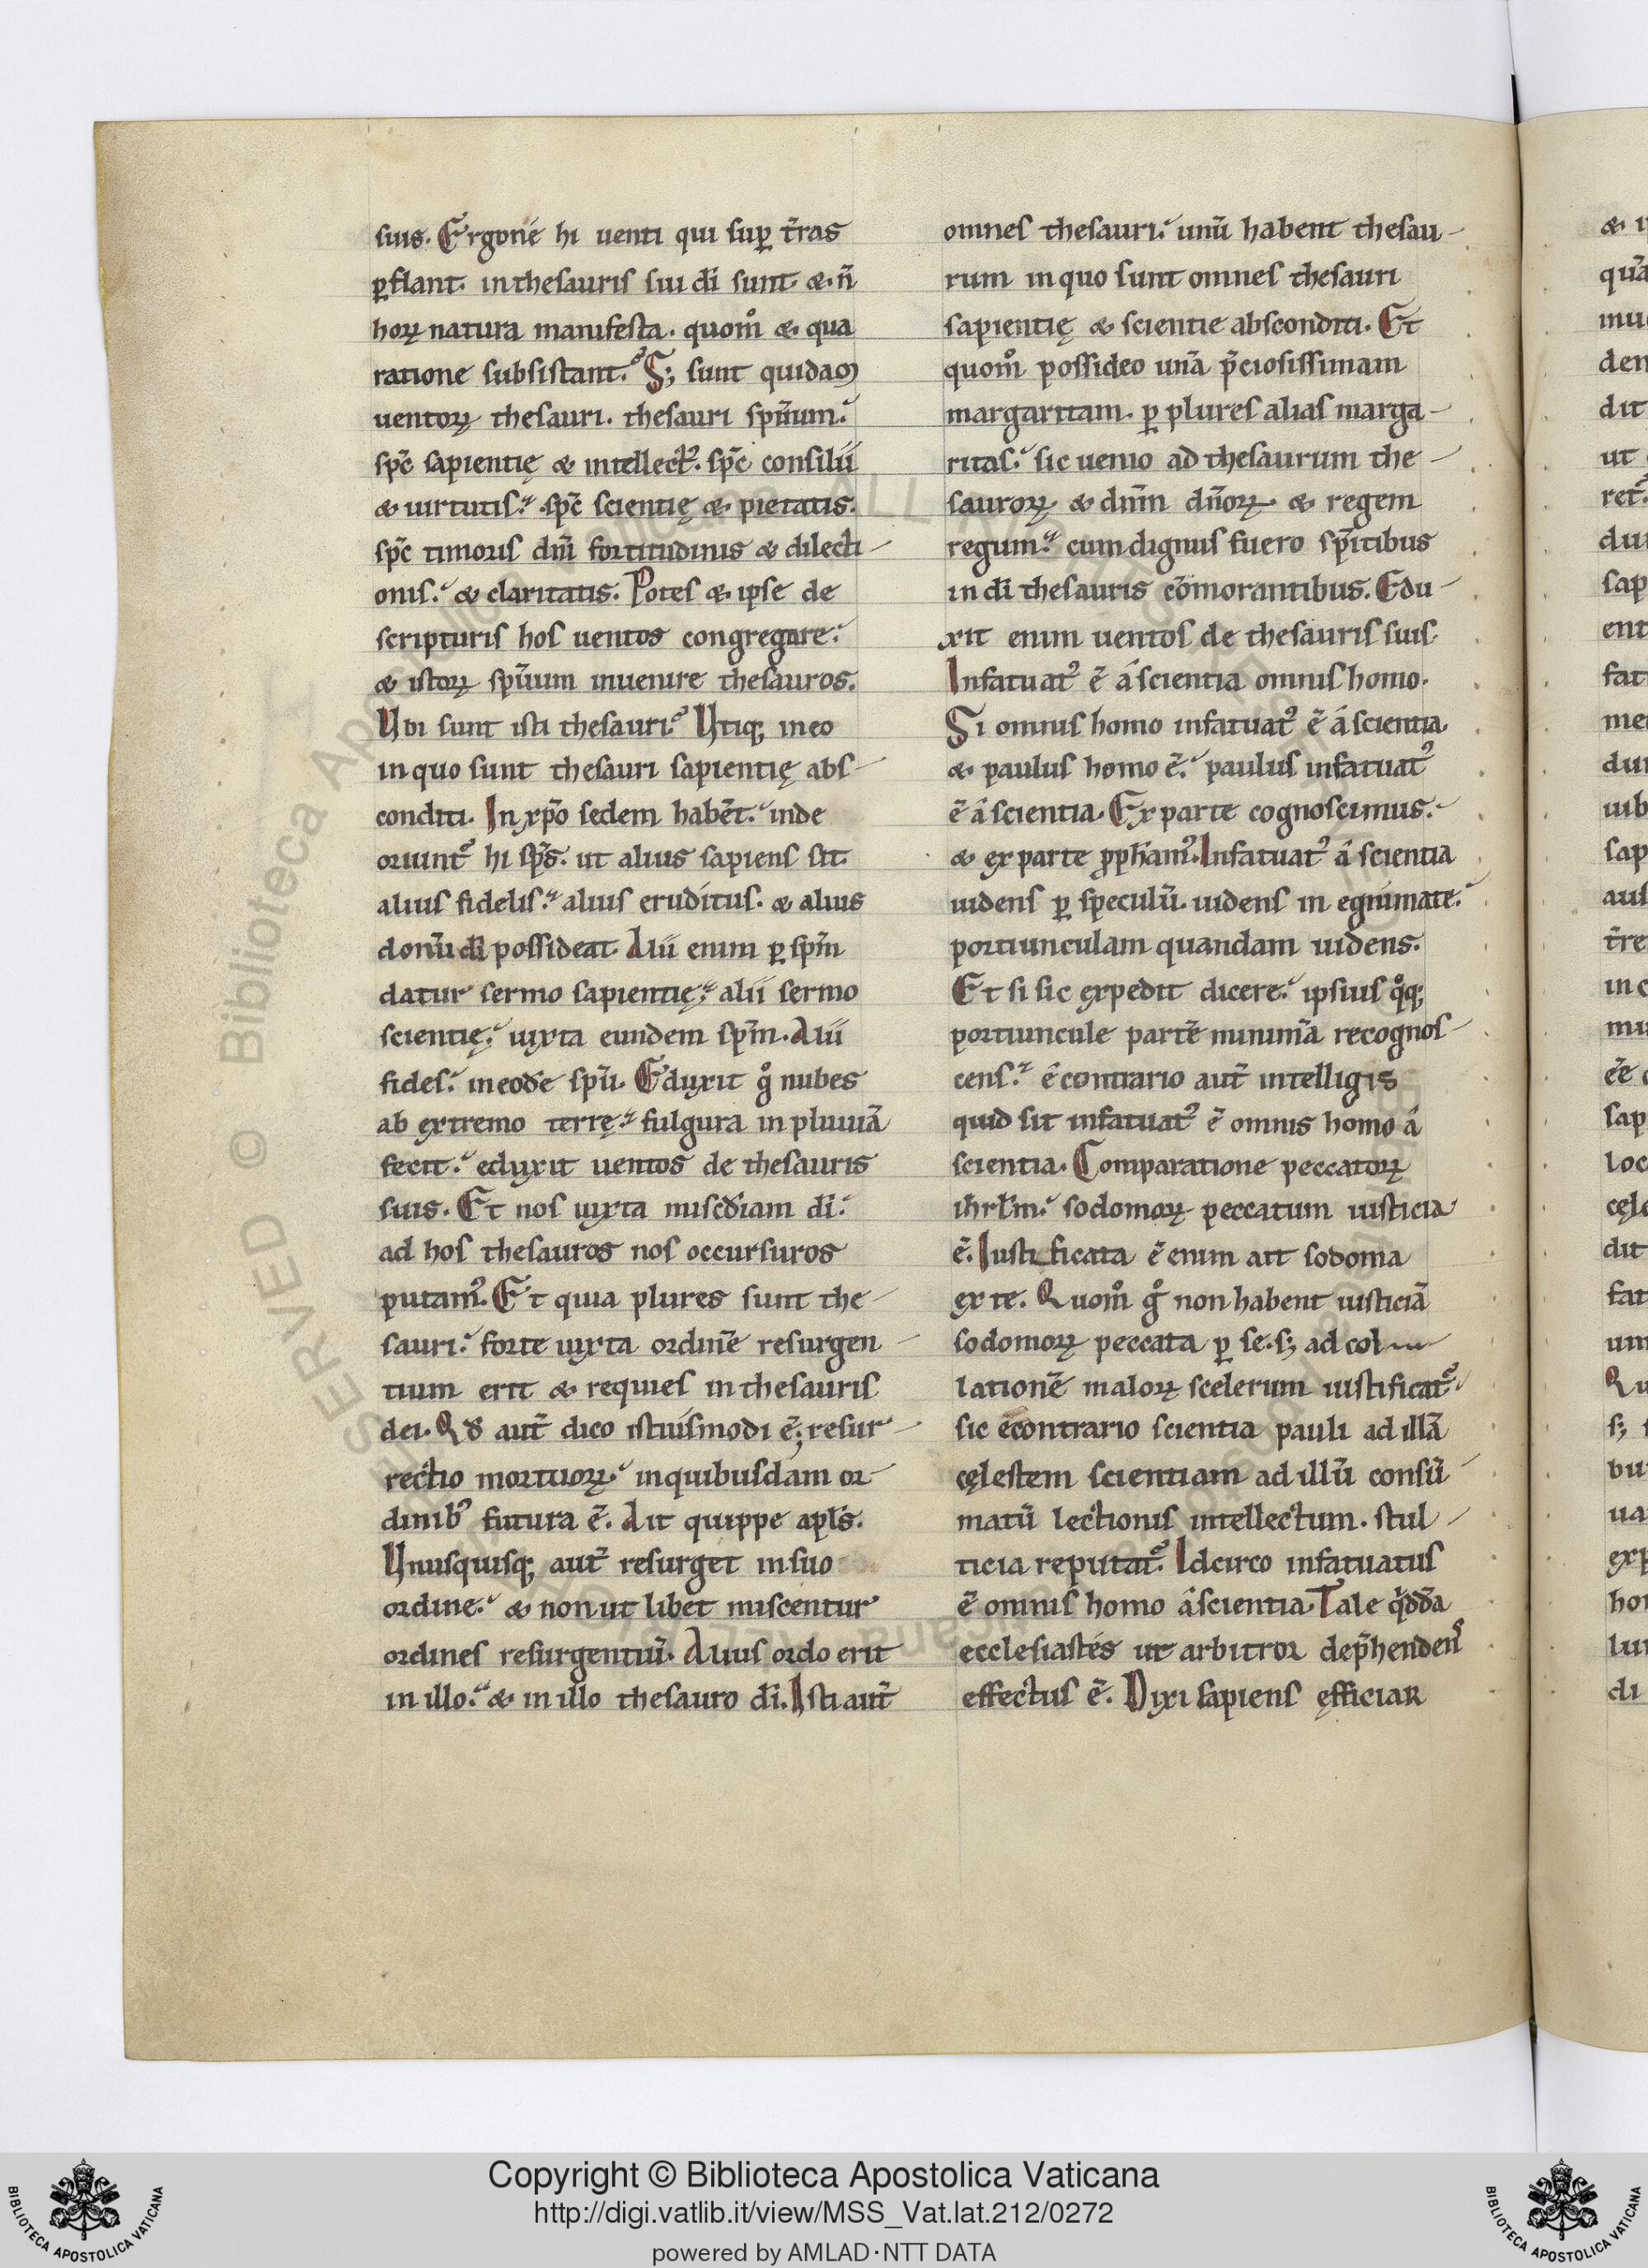 suis. Ergone hi uenti qui suꝑ t̄ras
ꝑflant. in thesauris sui di̅ sunt. & n̄
hoꝝ natura manifesta. quom̊ & qua
ratione subsistant. S; sunt quidam
uentoꝝ thesauri. thesauri spi̅tuum.
sp̅c sapientię & intellect᷒. sp̅c consilii
& uirtutis. sp̅c scientię & pietatis.
sp̅c timoris dn̅i fortitudinis & dilecti
onis. & claritatis. Potes & ipse de
scripturis hos uentos congregare.
& istoꝝ spi̅tuum inuenire thesauros.
Ubi sunt isti thesauri. Utiq; in eo
in quo sunt thesauri sapientię abs
conditi. In xp̅o sedem habēt. inde
oriunt᷒ hi sp̅s. ut alius sapiens sit.
alius fidelis. alius eruditus. & alius
donū di̅ possideat. Alii enim ꝑ sp̅m
datur sermo sapientię. alii sermo
scientię. iuxta eundem sp̅m. Alii
fides. in eode̅ sp̅u. Eduxit g̊ nubes
ab extremo terrę. fulgura in pluuiā
fecit. eduxit uentos de thesauris
suis. Et nos iuxta misc̅diam di̅.
ad hos thesauros nos occursuros
putam᷒. Et quia plures sunt the
sauri. forte iuxta ordinē resurgen
tium erit & requies in thesauris
dei. Qd̅ aut̄ dico istiusmodi ē; resur
rectio mortuoꝝ. in quibusdam or
dinib᷒ futura ē. Ait quippe apl̅s.
Unusquisq; aut̄ resurget in suo
ordine. & non ut libet miscentur
ordines resurgentiū. Alius ordo erit
in illo. & in illo thesauro di̅. Isti aut̄
omnes thesauri. unū habent thesau
rum in quo sunt omnes thesauri
sapientię & scientie absconditi. Et
quom̊ possideo unā p̄ciosissimam
margaritam. ꝑ plures alias marga
ritas. sic uenio ad thesaurum the
sauroꝝ & dn̅m dn̅oꝝ & regem
regum. cum dignus fuero sp̅itibus
in di̅ thesauris cōmorantibus. Edu
xit enim uentos de thesauris suis.
Infatuat᷒ ē á scientia omnis homo.
Si omnis homo infatuat᷒ ē á scientia
& paulus homo ē. paulus infatuat᷒
ē á scientia. Ex parte cognoscimus.
& ex parte ꝓph̅am᷒. Infatuat᷒ á scientia
uidens ꝑ speculū. uidens in egnimate.
portiunculam quandam uidens.
Et si sic expedit dicere. ipsius q̊q;
portiuncule partē minimā recognos
cens. é contrario aut̄ intelligis
quid sit infatuat᷒ ē omnis homo á
scientia. Comparatione peccatoꝝ
ih̅rl̅m. sodomoꝝ peccatum iusticia
ē. Iustificata ē enim ait sodoma
ex te. Quom̊ g̊ non habent iusticiā
sodomoꝝ peccata ꝑ se. s; ad col
lationē maloꝝ scelerum iustificat᷒.
sic econtrario scientia pauli ad illā
cęlestem scientiam ad illū consū
matū lectionis intellectum. stul
ticia reputat᷒. Idcirco infatuatus
ē omnis homo á scientia. Tale q̇dda̅
ecclesiastés ut arbitror dep̄hendens
effectus ē. Dixi sapiens efficiar
Copyright © Biblioteca Apostolica Vaticana
http://digi.vatlib.it/view/MSS_Vat.lat.212/0272
powered by AMLAD·NTT DATA